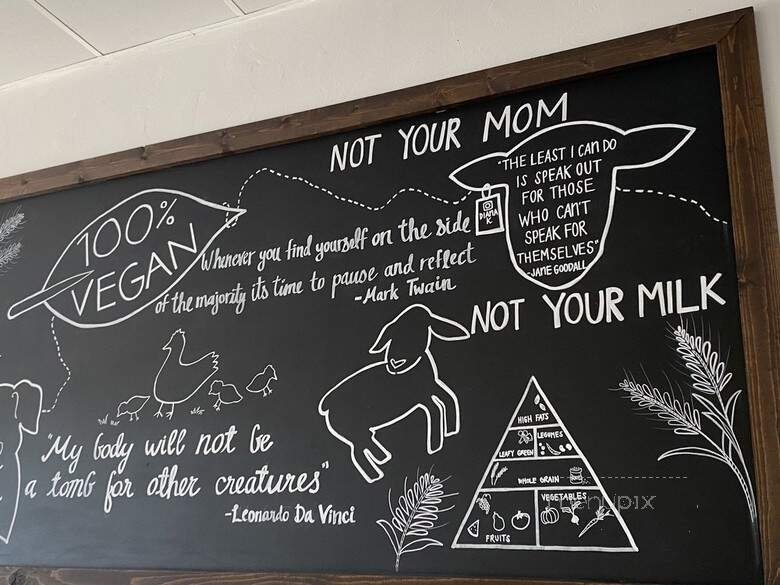 NOT YOUR MOM
100%
VEGAN
Whenever you find yourself on the side
of the majority its time to pause and reflect
-Mark Twain
"THE LEAST I CAN DO
IS SPEAK OUT
FOR THOSE
WHO CAN'T
SPEAK FOR
THEMSELVES"
-JANE GOODALL
DIANA
K
NOT YOUR MILK
"My body will not be
a tomb for other creatures"
-Leonardo Da Vinci
HIGH FATS
LEAFY GREEN
LEGUMES
WHOLE GRAIN
FRUITS
VEGETABLES
menupix